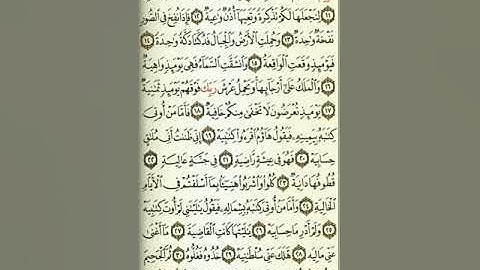 ١١ لِنَجْعَلَهَا لَكُمْ تَذْكِرَةً وَتَعِيَهَا أُذُنٌ وَٰعِيَةٌ ١٢ فَإِذَا نُفِخَ فِي ٱلصُّورِ
نَفْخَةٌ وَٰحِدَةٌ ١٣ وَحُمِلَتِ ٱلْأَرْضُ وَٱلْجِبَالُ فَدُكَّتَا دَكَّةً وَٰحِدَةً ١٤
فَيَوْمَئِذٍ وَقَعَتِ ٱلْوَاقِعَةُ ١٥ وَٱنشَقَّتِ ٱلسَّمَآءُ فَهِيَ يَوْمَئِذٍ وَاهِيَةٌ
١٦ وَٱلْمَلَكُ عَلَىٰٓ أَرْجَآئِهَا وَيَحْمِلُ عَرْشَ رَبِّكَ فَوْقَهُمْ يَوْمَئِذٍ ثَمَٰنِيَةٌ
١٧ يَوْمَئِذٍ تُعْرَضُونَ لَا تَخْفَىٰ مِنكُمْ خَافِيَةٌ ١٨ فَأَمَّا مَنْ أُوتِيَ
كِتَٰبَهُۥ بِيَمِينِهِۦ فَيَقُولُ هَآؤُمُ ٱقْرَءُوا۟ كِتَٰبِيَهْ ١٩ إِنِّي ظَنَنتُ أَنِّي مُلَٰقٍ
حِسَابِيَهْ ٢٠ فَهُوَ فِي عِيشَةٍ رَّاضِيَةٍ ٢١ فِي جَنَّةٍ عَالِيَةٍ ٢٢
قُطُوفُهَا دَانِيَةٌ ٢٣ كُلُوا۟ وَٱشْرَبُوا۟ هَنِيٓـًٔۢا بِمَآ أَسْلَفْتُمْ فِي ٱلْأَيَّامِ
ٱلْخَالِيَةِ ٢٤ وَأَمَّا مَنْ أُوتِيَ كِتَٰبَهُۥ بِشِمَالِهِۦ فَيَقُولُ يَٰلَيْتَنِي لَمْ أُوتَ كِتَٰبِيَهْ
٢٥ وَلَمْ أَدْرِ مَا حِسَابِيَهْ ٢٦ يَٰلَيْتَهَا كَانَتِ ٱلْقَاضِيَةَ ٢٧ مَآ أَغْنَىٰ
عَنِّي مَالِيَهْ ٢٨ هَلَكَ عَنِّي سُلْطَٰنِيَهْ ٢٩ خُذُوهُ فَغُلُّوهُ ٣٠ ثُمَّ ٱلْجَحِيمَ